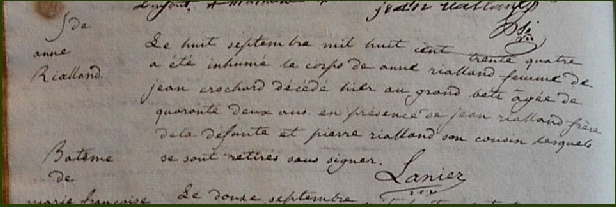 jean rialland
S. de
anne
Rialland
Le huit septembre mil huit cent trente quatre
a été inhumé le corps de anne rialland femme de
jean crochard décédé hier au grand beté agée de
quarante deux ans en présence de jean rialland frère
dela defunte et pierre rialland son cousin lesquels
se sont retirés sans signer.
Lanier
Bateme
de
marie françoise
Le douze septembre